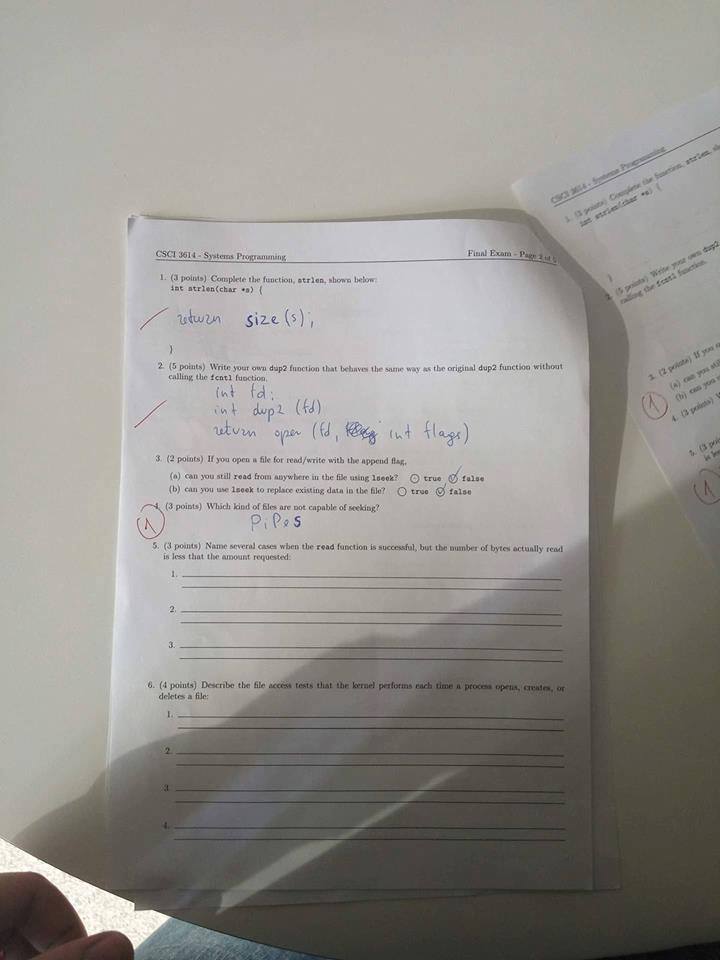 CSCI 3614 - Systems Programming Final Exam - Page 2 of 5
1. (3 points) Complete the function, strlen, shown below:
int strlen(char *s) {
return size(s);
}
2. (5 points) Write your own dup2 function that behaves the same way as the original dup2 function without
calling the fcntl function.
int fd;
int dup2 (fd)
return open (fd, int flags)
3. (2 points) If you open a file for read/write with the append flag,
(a) can you still read from anywhere in the file using lseek? true false
(b) can you use lseek to replace existing data in the file? true false
4. (3 points) Which kind of files are not capable of seeking?
1
PiPes
5. (3 points) Name several cases when the read function is successful, but the number of bytes actually read
is less that the amount requested:
1.
2.
3.
6. (4 points) Describe the file access tests that the kernel performs each time a process opens, creates, or
deletes a file:
1.
2.
3
4.
CSCI 3614 - Systems Programming
1. (3 points) Complete the function, strlen,
int strlen(char *s) {
}
2. (5 points) Write your own dup2
calling the fcntl function.
3. (2 points) If you
(a) can you
(b) can you
1
4. (3 points)
5.
is
1